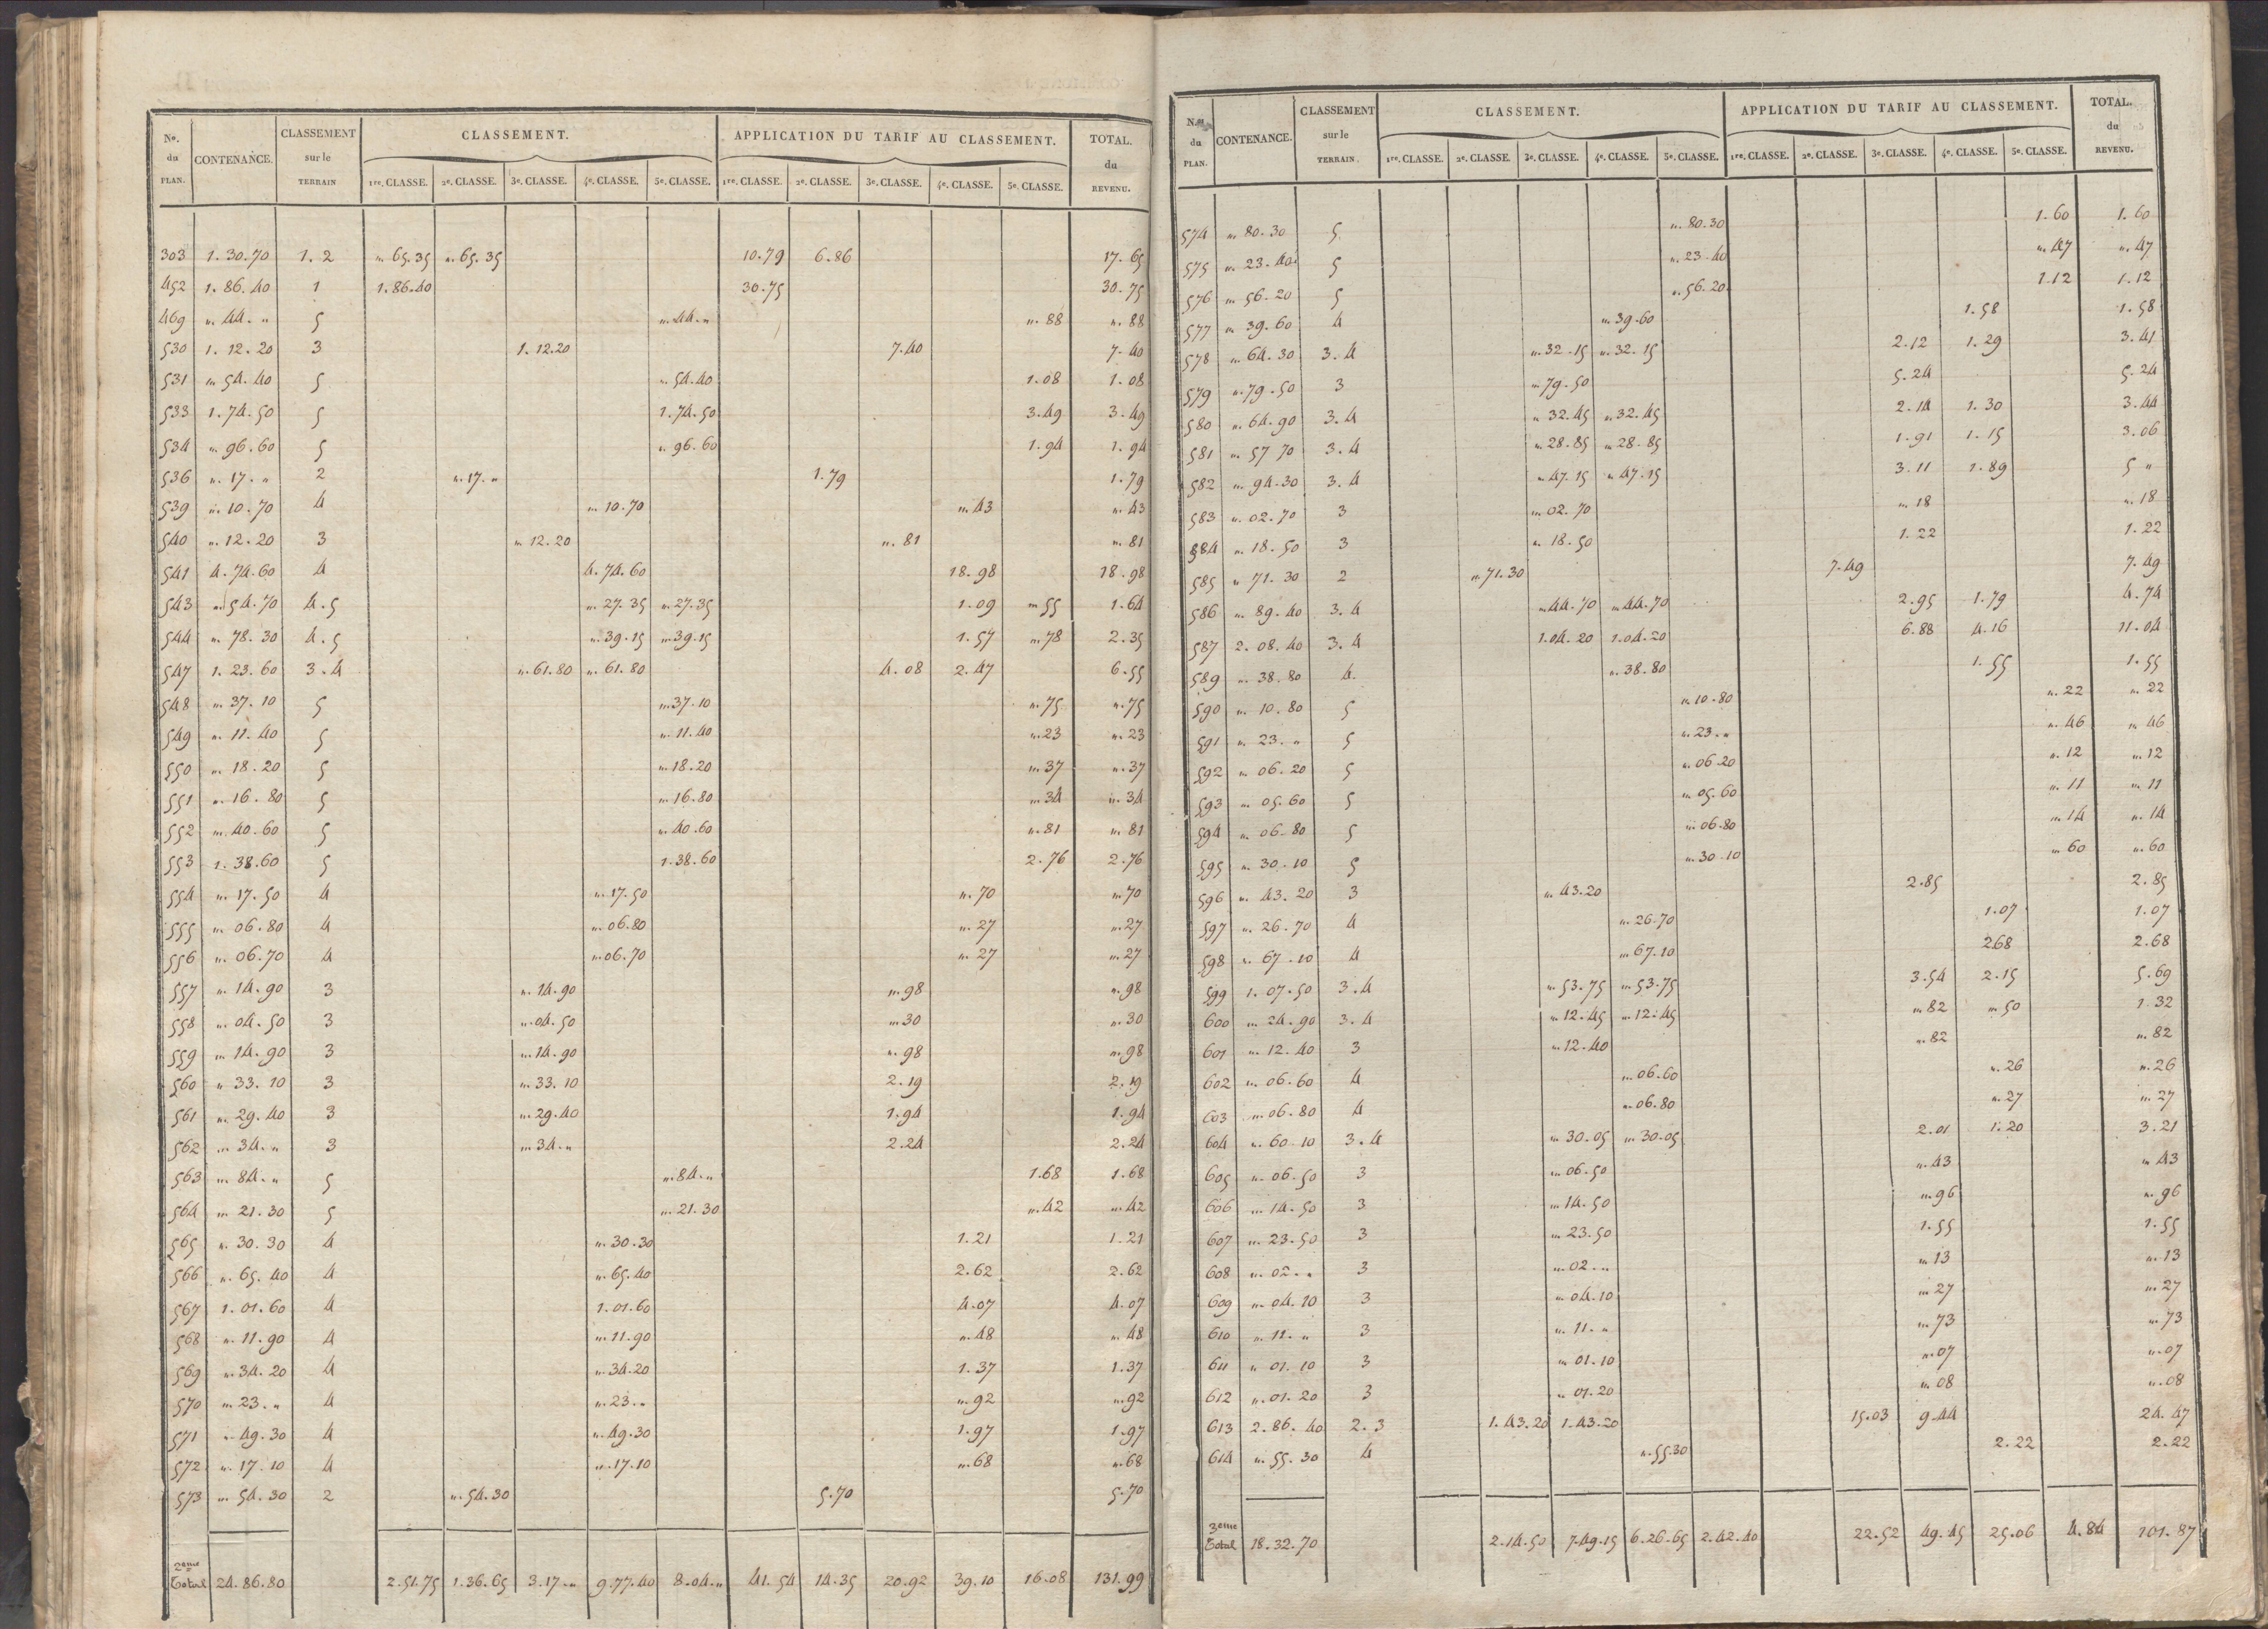 Nº. du PLAN. CONTENANCE. CLASSEMENT sur le TERRAIN CLASSEMENT. APPLICATION DU TARIF AU CLASSEMENT. TOTAL. du REVENU.
1re. CLASSE. 2e. CLASSE. 3e. CLASSE. 4e. CLASSE. 5e. CLASSE. 1re. CLASSE. 2e. CLASSE. 3e. CLASSE. 4e. CLASSE. 5e. CLASSE.
303 1.30.70 1.2 ". 65.35 ". 65.35 10.79 6.86 17.65
452 1.86.40 1 1.86.40 30.75 30.75
469 ". 44. " 5 ". 44. " ". 88 ". 88
530 1.12.20 3 1.12.20 7.40 7.40
531 ". 54.40 5 ". 54.40 1.08 1.08
533 1.74.50 5 1.74.50 3.49 3.49
534 ". 96.60 5 ". 96.60 1.94 1.94
536 ". 17. " 2 ". 17. " 1.79 1.79
539 ". 10.70 4 ". 10.70 ". 43 ". 43
540 ". 12.20 3 ". 12.20 ". 81 ". 81
541 4.74.60 4 4.74.60 18.98 18.98
543 ". 54.70 4.5 ". 27.35 ". 27.35 1.09 ". 55 1.64
544 ". 78.30 4.5 ". 39.15 ". 39.15 1.57 ". 78 2.35
547 1.23.60 3.4 ". 61.80 ". 61.80 4.08 2.47 6.55
548 ". 37.10 5 ". 37.10 ". 75 ". 75
549 ". 11.40 5 ". 11.40 ". 23 ". 23
550 ". 18.20 5 ". 18.20 ". 37 ". 37
551 ". 16.80 5 ". 16.80 ". 34 ". 34
552 ". 40.60 5 ". 40.60 ". 81 ". 81
553 1.38.60 5 1.38.60 2.76 2.76
554 ". 17.50 4 ". 17.50 ". 70 ". 70
555 ". 06.80 4 ". 06.80 ". 27 ". 27
556 ". 06.70 4 ". 06.70 ". 27 ". 27
557 ". 14.90 3 ". 14.90 ". 98 ". 98
558 ". 04.50 3 ". 04.50 ". 30 ". 30
559 ". 14.90 3 ". 14.90 ". 98 ". 98
560 ". 33.10 3 ". 33.10 2.19 2.19
561 ". 29.40 3 ". 29.40 1.94 1.94
562 ". 34. " 3 ". 34. " 2.24 2.24
563 ". 84. " 5 ". 84. " 1.68 1.68
564 ". 21.30 5 ". 21.30 ". 42 ". 42
565 ". 30.30 4 ". 30.30 1.21 1.21
566 ". 65.40 4 ". 65.40 2.62 2.62
567 1.01.60 4 1.01.60 4.07 4.07
568 ". 11.90 4 ". 11.90 ". 48 ". 48
569 ". 34.20 4 ". 34.20 1.37 1.37
570 ". 23. " 4 ". 23. " ". 92 ". 92
571 ". 49.30 4 ". 49.30 1.97 1.97
572 ". 17.10 4 ". 17.10 ". 68 ". 68
573 ". 54.30 2 ". 54.30 5.70 5.70
2eme Total 24.86.80 2.51.75 1.36.65 3.17. " 9.77.40 8.04. " 41.54 14.35 20.92 39.10 16.08 131.99
N.os du PLAN. CONTENANCE. CLASSEMENT sur le TERRAIN. CLASSEMENT. APPLICATION DU TARIF AU CLASSEMENT. TOTAL. du REVENU.
1re. CLASSE. 2e. CLASSE. 3e. CLASSE. 4e. CLASSE. 5e. CLASSE. 1re. CLASSE. 2e. CLASSE. 3e. CLASSE. 4e. CLASSE. 5e. CLASSE.
574 ". 80.30 5 ". 80.30 1.60 1.60
575 ". 23.40 5 ". 23.40 ". 47 ". 47
576 ". 56.20 5 ". 56.20 1.12 1.12
577 ". 39.60 4 ". 39.60 1.58 1.58
578 ". 64.30 3.4 ". 32.15 ". 32.15 2.12 1.29 3.41
579 ". 79.50 3 ". 79.50 5.24 5.24
580 ". 64.90 3.4 ". 32.45 ". 32.45 2.14 1.30 3.44
581 ". 57 70 3.4 ". 28.85 ". 28.85 1.91 1.15 3.06
582 ". 94.30 3.4 ". 47.15 ". 47.15 3.11 1.89 5 "
583 ". 02.70 3 ". 02.70 ". 18 ". 18
584 ". 18.50 3 ". 18.50 1.22 1.22
585 ". 71.30 2 ". 71.30 7.49 7.49
586 ". 89.40 3.4 ". 44.70 ". 44.70 2.95 1.79 4.74
587 2.08.40 3.4 1.04.20 1.04.20 6.88 4.16 11.04
589 ". 38.80 4. ". 38.80 1.55 1.55
590 ". 10.80 5 ". 10.80 ". 22 ". 22
591 ". 23. " 5 ". 23. " ". 46 ". 46
592 ". 06.20 5 ". 06.20 ". 12 ". 12
593 ". 05.60 5 ". 05.60 ". 11 ". 11
594 ". 06.80 5 ". 06.80 ". 14 ". 14
595 ". 30.10 5 ". 30.10 ". 60 ". 60
596 ". 43.20 3 ". 43.20 2.85 2.85
597 ". 26.70 4 ". 26.70 1.07 1.07
598 ". 67.10 4 ". 67.10 2.68 2.68
599 1.07.50 3.4 ". 53.75 ". 53.75 3.54 2.15 5.69
600 ". 24.90 3.4 ". 12.45 ". 12.45 ". 82 ". 50 1.32
601 ". 12.40 3 ". 12.40 ". 82 ". 82
602 ". 06.60 4 ". 06.60 ". 26 ". 26
603 ". 06.80 4 ". 06.80 ". 27 ". 27
604 ". 60.10 3.4 ". 30.05 ". 30.05 2.01 1.20 3.21
605 ". 06.50 3 ". 06.50 ". 43 ". 43
606 ". 14.50 3 ". 14.50 ". 96 ". 96
607 ". 23.50 3 ". 23.50 1.55 1.55
608 ". 02. " 3 ". 02. " ". 13 ". 13
609 ". 04.10 3 ". 04.10 ". 27 ". 27
610 ". 11. " 3 ". 11. " ". 73 ". 73
611 ". 01.10 3 ". 01.10 ". 07 ". 07
612 ". 01.20 3 ". 01.20 ". 08 ". 08
613 2.86.40 2.3 1.43.20 1.43.20 15.03 9.44 24.47
614 ". 55.30 4 ". 55.30 2.22 2.22
3eme Total 18.32.70 2.14.50 7.49.15 6.26.65 2.42.40 22.52 49.45 25.06 4.84 101.87